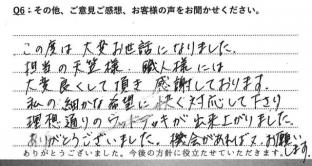 Q6：その他、ご意見ご感想、お客様の声をお聞かせください。
この度は大変お世話になりました。
担当の天笠様、職人様には
大変良くして頂き感謝しております。
私の細かな希望に快く対応して下さり
理想通りのウッドデッキが出来上がりました。
ありがとうございました。機会があれば又、お願いします。
ありがとうございました。今後の方針に役立たせていただきます。